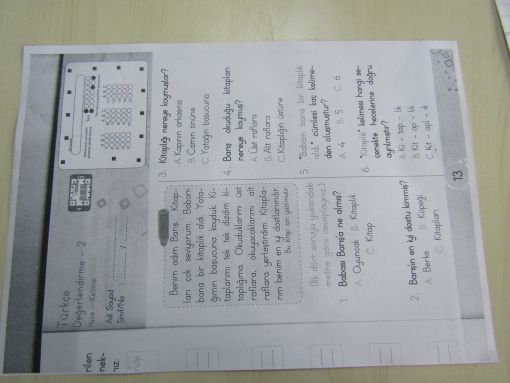 Türkçe
Değerlendirme - 2
Hece - Kelime
Ad Soyad
Sınıf/No
rilen
nek-
nız.
nde
Benim adım Barış. Kitap-
ları çok seviyorum. Babam
bana bir kitaplık aldı. Yata-
ğımın başucuna koyduk. Ki-
taplarımı tek tek dizdim ki-
taplığıma. Okuduklarımı üst
raflara, okuyacaklarımı alt
raflara yerleştirdim. Kitapla-
rım benim en iyi dostlarımdır.
(İlk dört soruyu yukarıdaki
metne göre cevaplayınız.)
1. Babası Barış'a ne almış?
A. Oyuncak B. Kitaplık
C. Kitap
2. Barış'ın en iyi dostu kimmiş?
A. Berke B. Köpeği
C. Kitapları
3. Kitaplığı nereye koymuşlar?
A. Kapının arkasına
B. Camın önüne
C. Yatağın başucuna
4. Barış okuduğu kitapları
nereye koymuş?
A. Üst raflara
B. Alt raflara
C. Kitaplığın üstüne
5. "Babam bana bir kitaplık
aldı." cümlesi kaç kelime-
den oluşmuştur?
A. 4 B. 5 C. 6
6. "Kitaplık" kelimesi hangi se-
çenekte hecelerine doğru
ayrılmıştır?
A. Ki - tap - lık
B. Kit - ap - lık
C. Kit - apl - ık
13